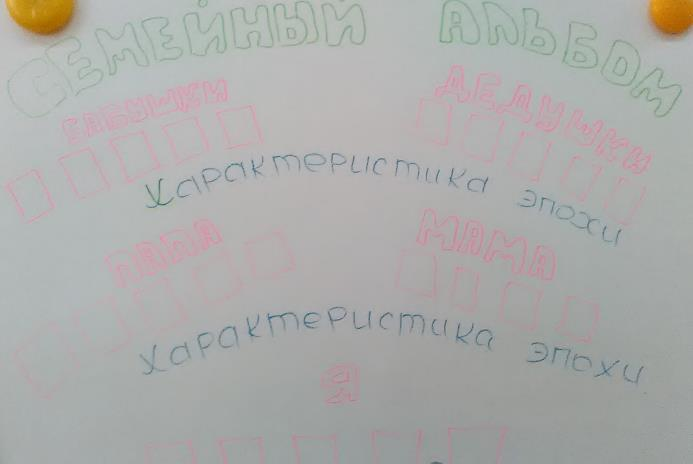 СЕМЕЙНЫЙ АЛЬБОМ
БАБУШКИ ДЕДУШКИ
Характеристика эпохи
ПАПА МАМА
Характеристика эпохи
Я